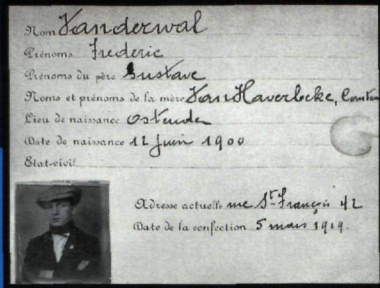 Nom Vanderwal
Prénoms Frederic
Prénoms du père Gustave
Noms et prénoms de la mère Van Haverbeke, Constan
Lieu de naissance Ostende
Date de naissance 12 Juin 1900
Etat-civil
Adresse actuelle rue St. François 42
Date de la confection 5 mars 1919.